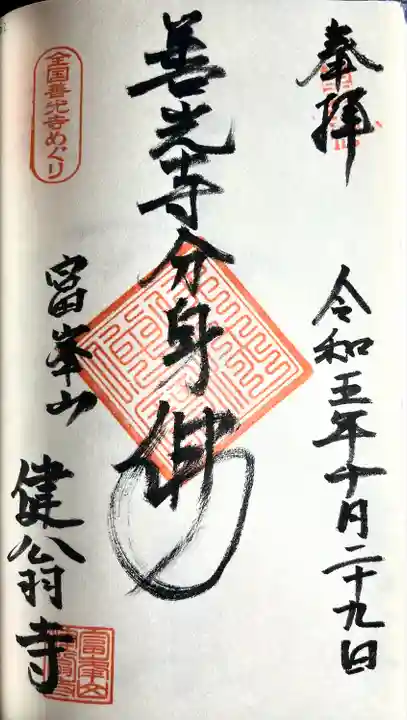 奉拝
令和五年十月二十九日
善光寺分身仏
富峯山
健翁寺
全国善光寺めぐり